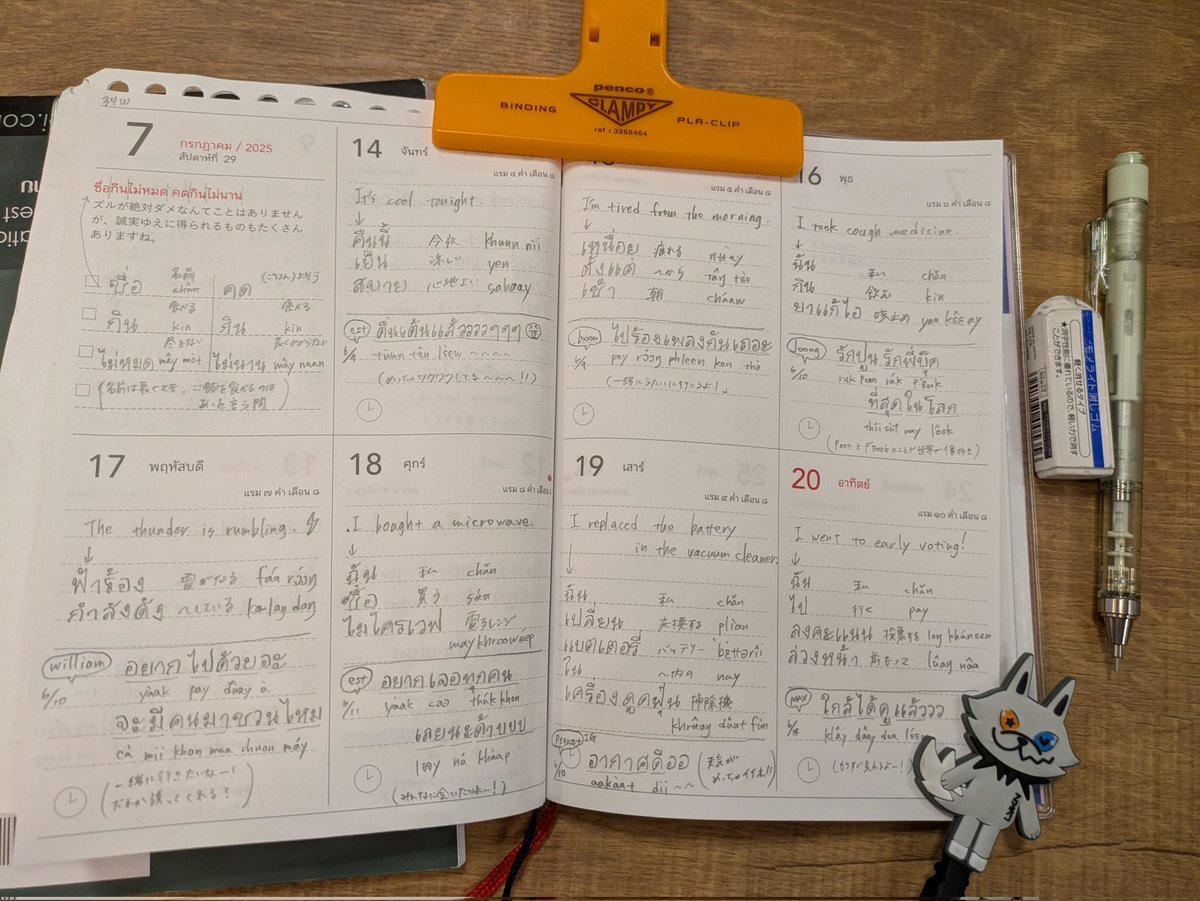 penco®
CLAMPY
BINDING
PLA-CLIP
ref : 3255464
34W
7
กรกฎาคม / 2025
สัปดาห์ที่ 29
ซื่อกินไม่หมด คดกินไม่นาน
ズルが絶対ダメなんてことはありませんが、誠実ゆえに得られるものもたくさんありますね。
ชื่อ 名前 คด
กิน 食べる kin กิน 食べる kin
ไม่หมด mây mòt ไม่นาน mây naan
14 จันทร์
แรม ๔ ค่ำ เดือน ๘
It's cool tonight.
↓
คืนนี้ 今夜 khuun níi
เย็น 涼しい yen
สบาย 心地よい sabaay
est ตื่นเต้นแล้วววววๆๆๆ
6/9 tùwn tên lɛ́ɛw ~~~~
แรม ๕ ค่ำ เดือน ๘
I'm tired from the morning.
↓
เหนื่อย 疲れる nùay
ตั้งแต่ ~から tâŋ tɛ̀ɛ
เช้า 朝 cháaw
boom ไปร้องเพลงกันเถอะ
6/9 pay rɔ́ɔŋ phleeŋ kan thə̀
16 พุธ
แรม ๖ ค่ำ เดือน ๘
I took cough medicine.
↓
ฉัน 私 chǎn
กิน 飲む kin
ยาแก้ไอ 咳止め yaa kɛ̂ɛ ay
Joong รักปูน รักพี่บุ๊ค
6/10 rák poon rák p'Book
ที่สุดในโลก
thîi sùt nay lôok
17 พฤหัสบดี
แรม ๗ ค่ำ เดือน ๘
The thunder is rumbling.
↓
ฟ้าร้อง 雷がなる fáa rɔ́ɔŋ
กำลังดัง ~している kamlaŋ daŋ
william อยากไปด้วยอะ
6/10 yàak pay dûay à
จะมีคนมาชวนไหม
cà mii khon maa chuan máy
(一緒に行きたいなー!
だれか誘ってくれるて)
18 ศุกร์
แรม ๘ ค่ำ เดือน ๘
I bought a microwave.
↓
ฉัน 私 chǎn
ซื้อ 買う súu
ไมโครเวฟ 電子レンジ
maykhrooweep
est อยากเจอทุกคน
6/11 yàak cəə thúk khon
เลยนะค้าบบบ
ləəy ná kháap
(みんなに会いたいよー!)
19 เสาร์
แรม ๙ ค่ำ เดือน ๘
I replaced the battery
in the vacuum cleaner.
↓
ฉัน 私 chǎn
เปลี่ยน 交換する plian
แบตเตอรี่ バッテリー bèttərîi
ใน ~内の nay
เครื่องดูดฝุ่น 掃除機
khrûay dùut fùn
IG
6/10 อากาศดีออ
aakàat dii ~~
20 อาทิตย์
แรม ๑๐ ค่ำ เดือน ๘
I went to early voting!
↓
ฉัน 私 chǎn
ไป 行く pay
ลงคะแนน 投票する loŋ khánɛɛn
ล่วงหน้า 前もって lûaŋ nâa
NAY ใกล้ได้ดูแล้ววว
klây dâay duu lɛ́ɛw